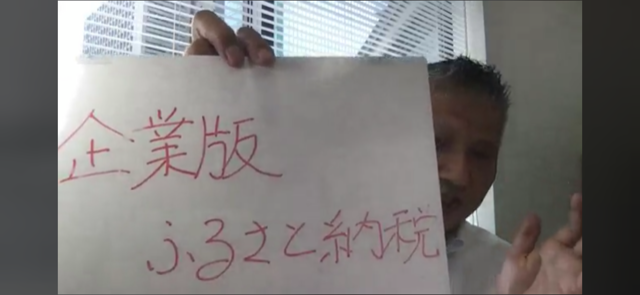 企業版
ふるさと納税